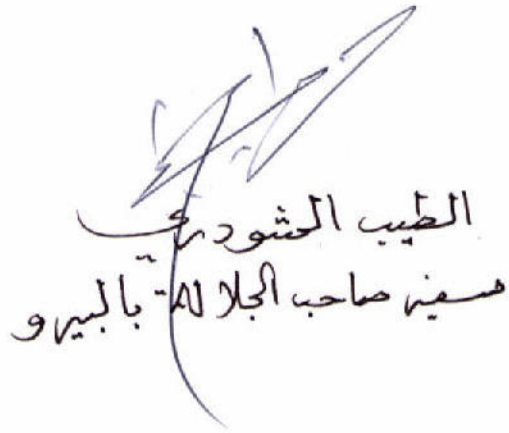 الطيب الحشودري
سفير صاحب الجلالة بالبيرو